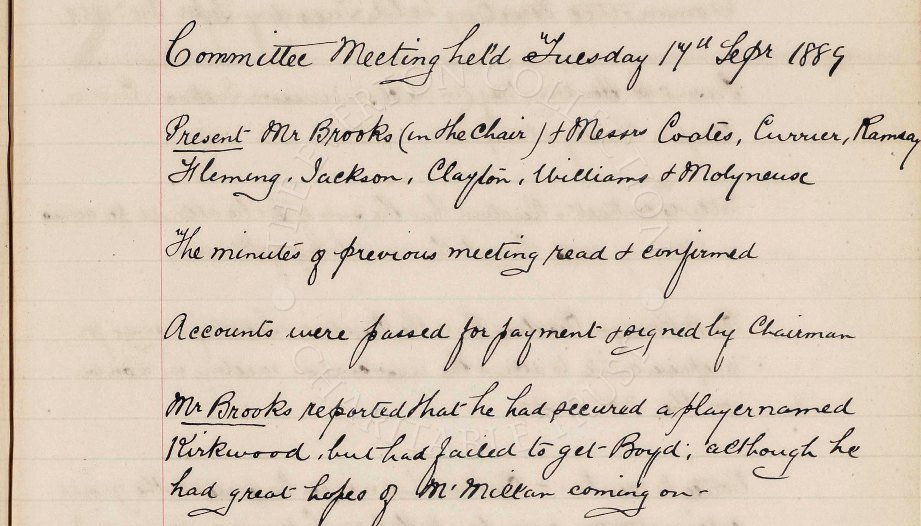 Committee Meeting held Tuesday 17th Sepr 1889
Present Mr Brooks (in the Chair) & Messrs Coates, Currier, Ramsay
Fleming, Jackson, Clayton, Williams & Molyneux
The minutes of previous meeting read & confirmed
Accounts were passed for payment & signed by Chairman
Mr Brooks reported that he had secured a player named
Kirkwood, but had failed to get Boyd; although he
had great hopes of McMillan coming on-
THE EVERTON COLLECTION
CHARITABLE TRUST